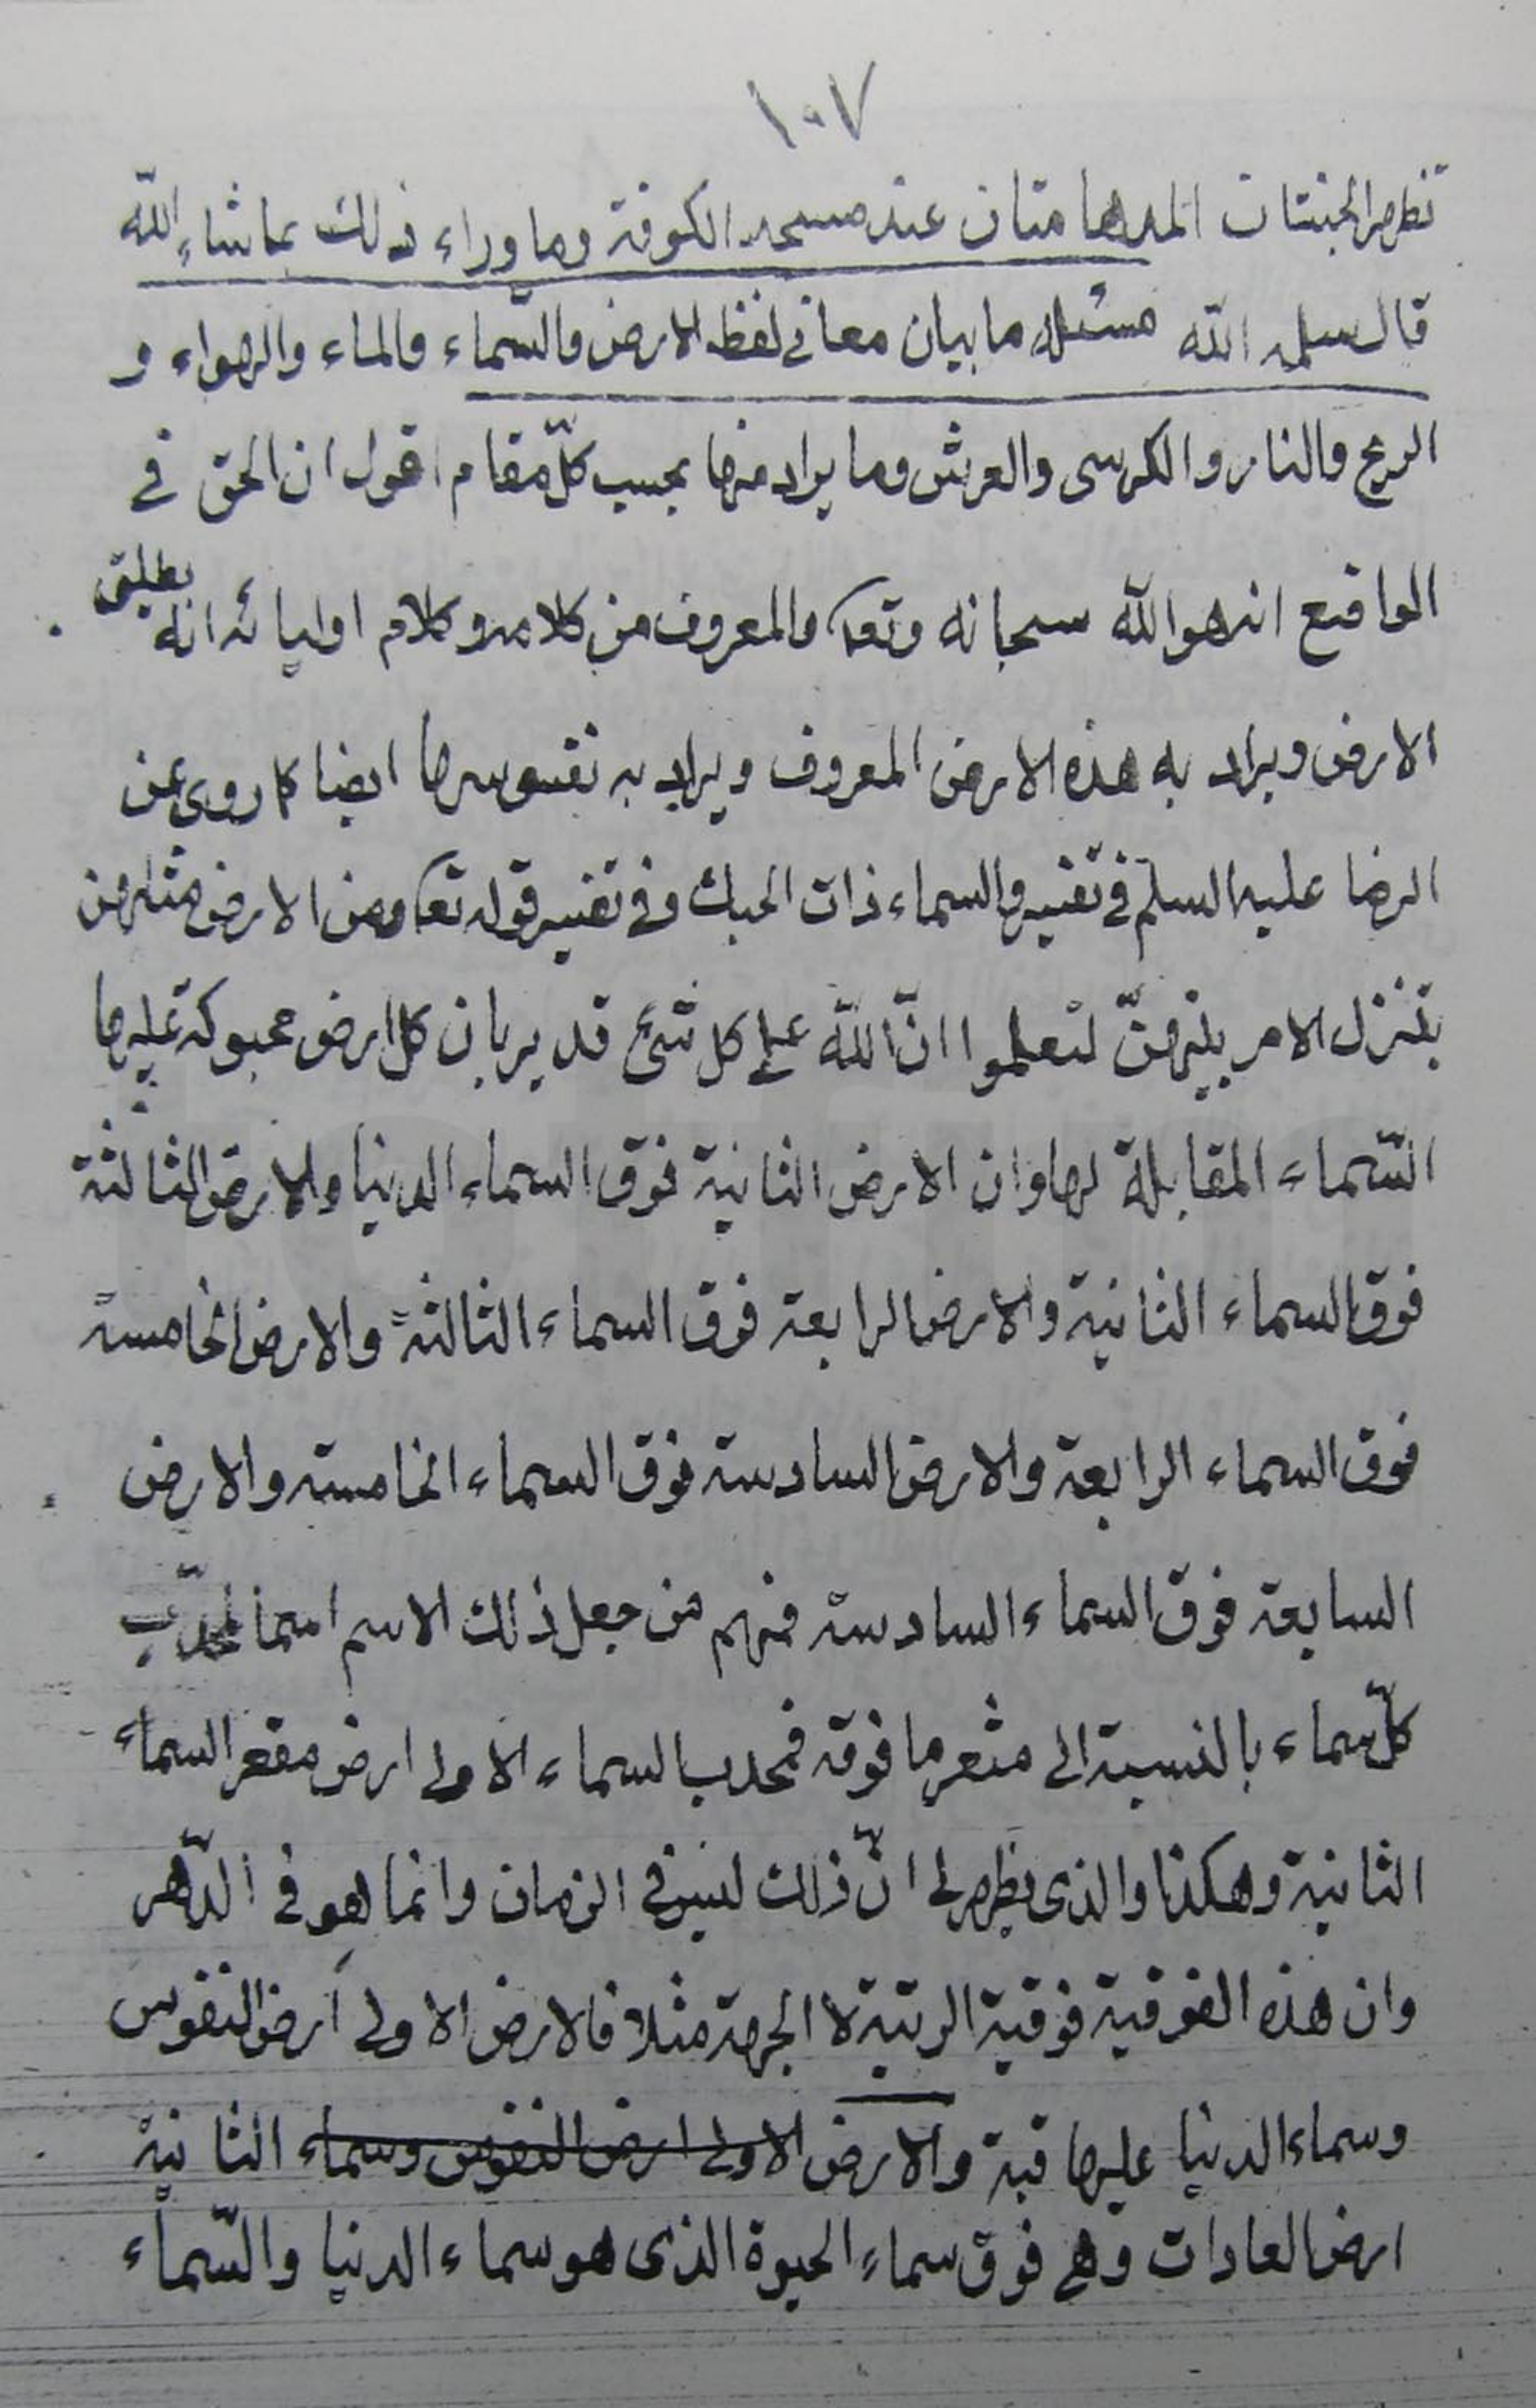 ١٠٧
تظهر الجنتان المدهامتان عند مسجد الكوفة وما وراء ذلك بما شاء الله
قال سلمه الله مسئلة ما بيان معاني لفظ الارض والسّماء والماء والهواء و
الريح والنار والكرسى والعرش وما يراد منها بحسب كلّ مقام اقول ان الحق في
الواقع انه هو الله سبحانه وتعا والمعروف من كلامه وكلام اوليائه انه يطلق
الارض ويراد به هذه الارض المعروف ويراد به نفوسها ايضا كما روى عن
الرضا عليه السلم في تفسير والسماء ذات الحبك وفى تفسير قوله تعا ومن الارض مثلهن
يتنزل الامر بينهنّ لتعلموا انّ الله على كل شئ قدير بان كل ارض محبوكة عليها
السّماء المقابلة لها وان الارض الثانية فوق السماء الدنيا والارض الثالثة
فوق السماء الثانية والارض الرابعة فوق السماء الثالثة والارض الخامسة
فوق السماء الرابعة والارض السادسة فوق السماء الخامسة والارض
السابعة فوق السماء السادسة فمنهم من جعل ذلك الاسم اسما لمحدّب
كلّ سماء بالنسبة الى مقعر ما فوقه فمحدب السماء الاولى ارض مقعر السماء
الثانية وهكذا والذى يظهر لى انّ ذلك ليس في الزمان وانما هو فى الدّهر
وان هذه الفوقية فوقية الرتبة لا الجهة مثلا فالارض الاولى ارض النفوس
وسماء الدنيا عليها قبة والارض الاولى ارض النفوس وسماء الثانية
ارض العادات وهى فوق سماء الحيوة الذى هو سماء الدنيا والسّماء